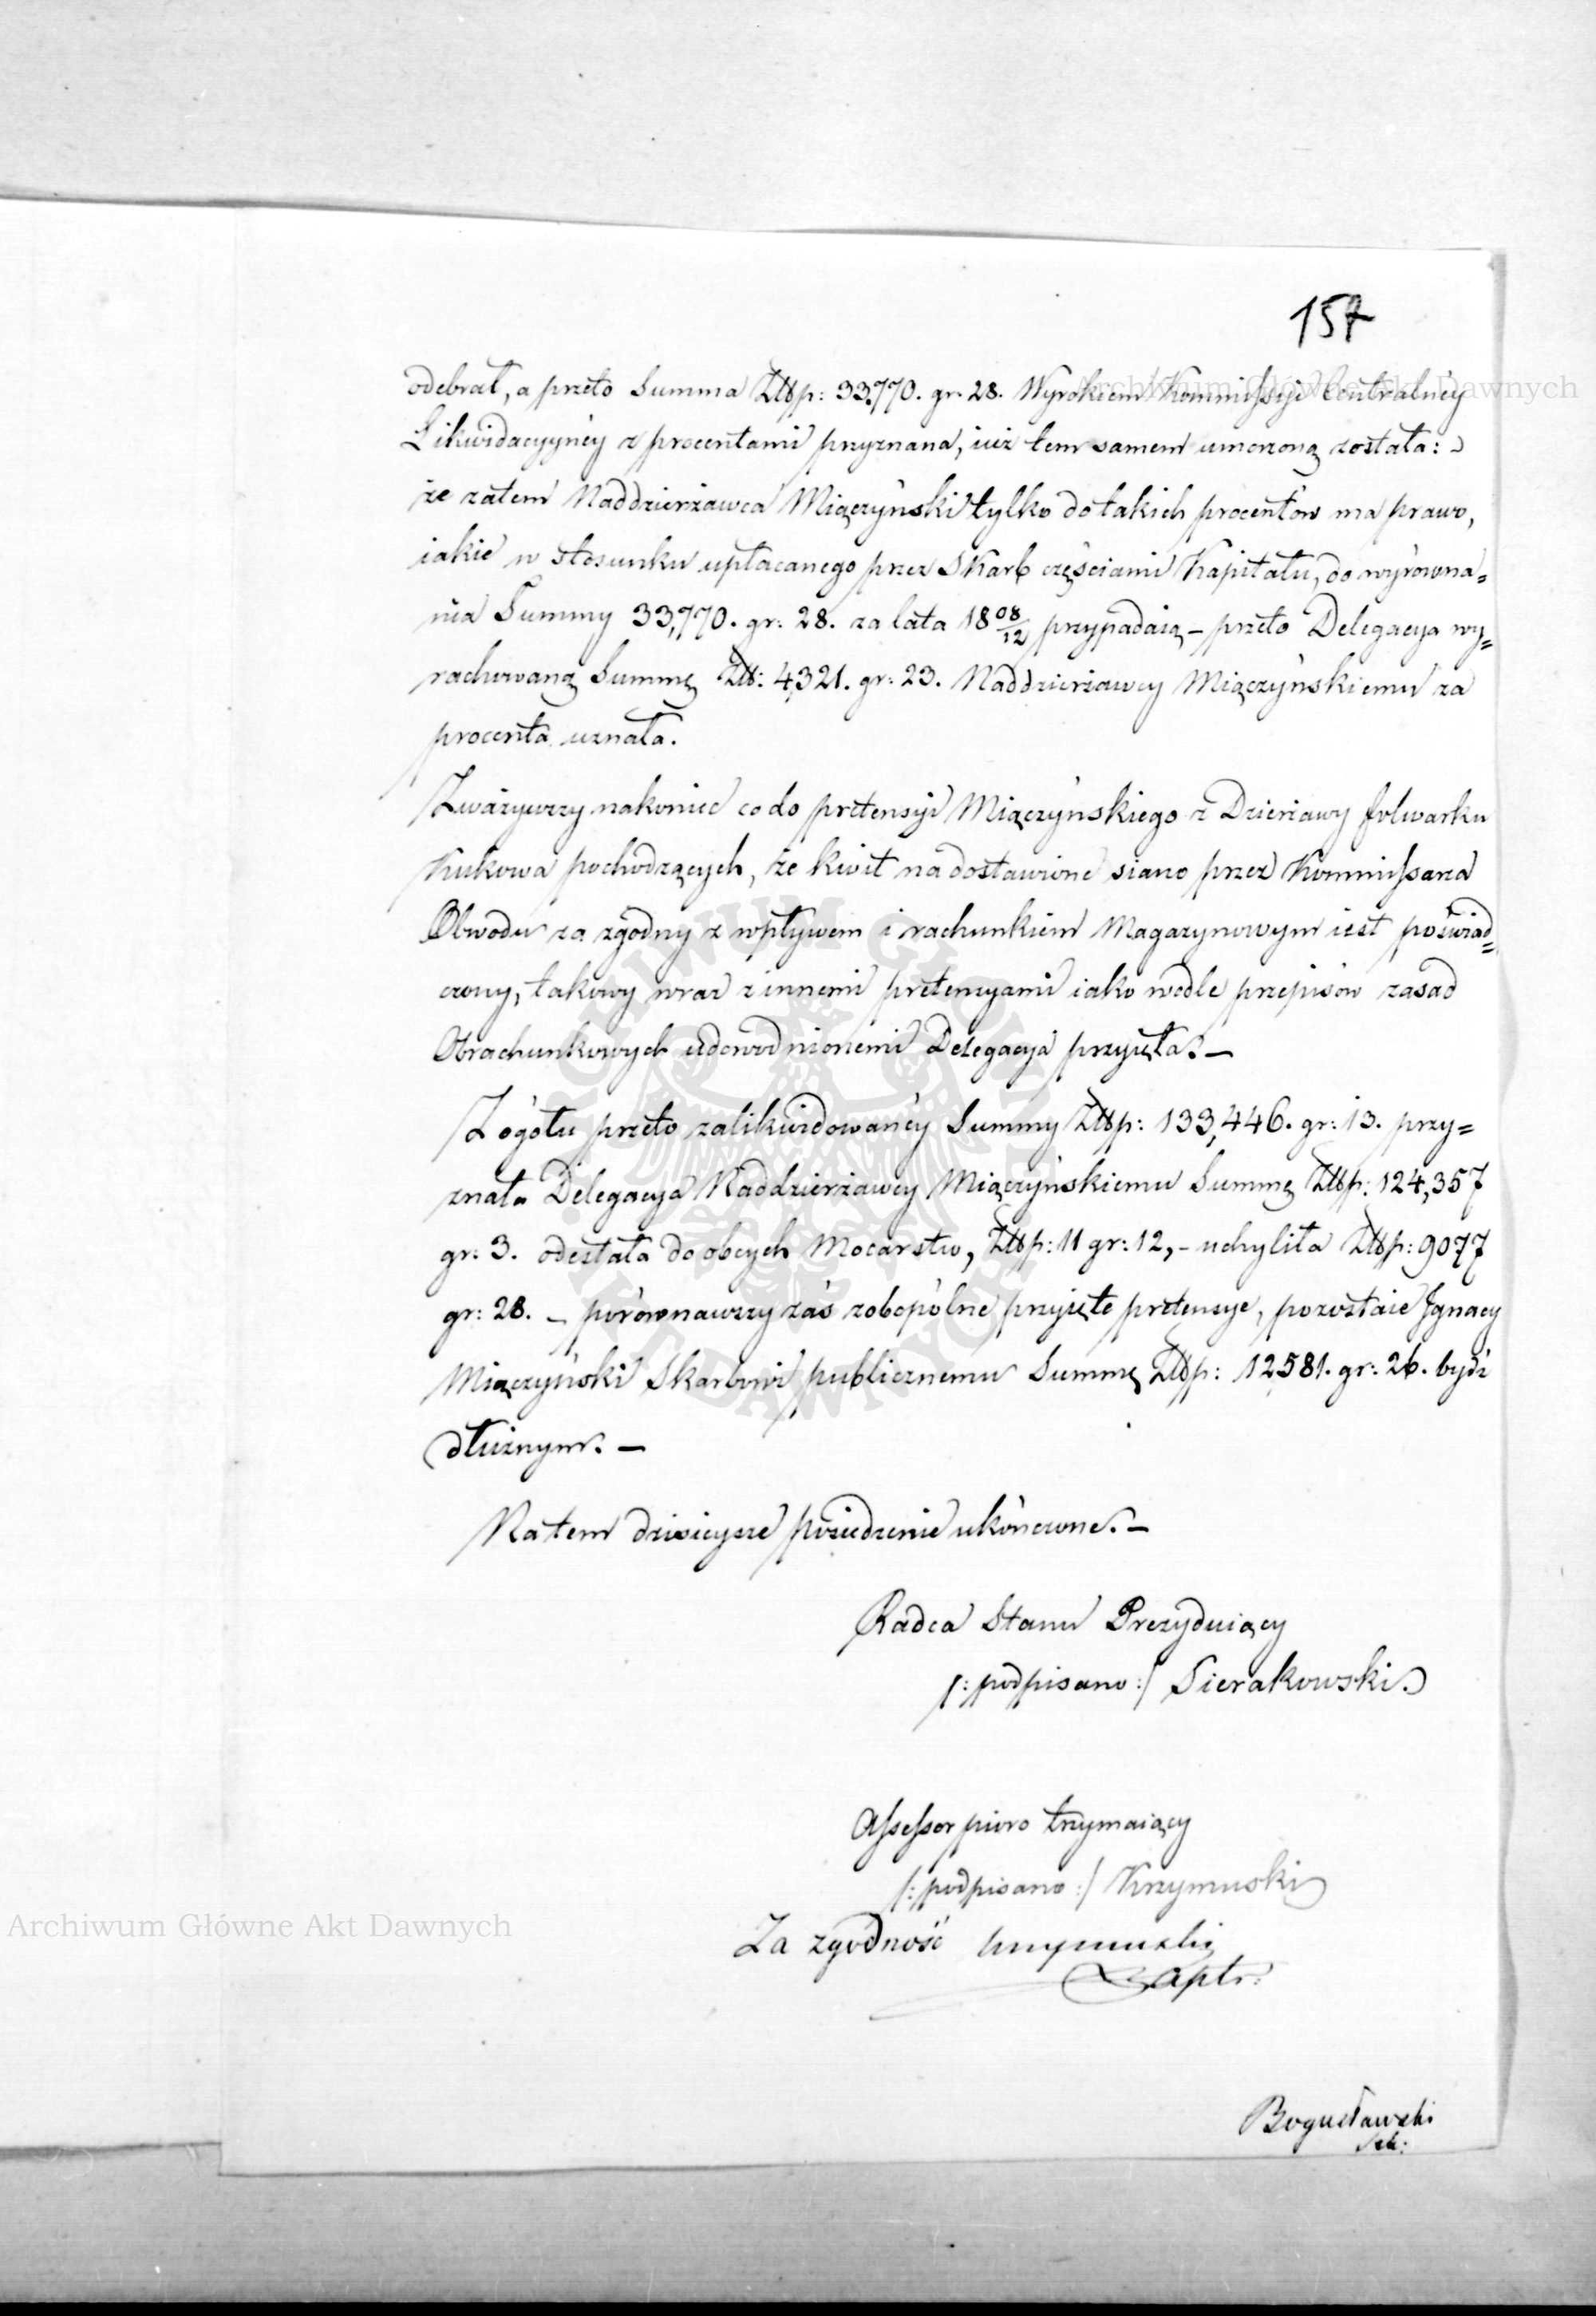 157
odebrał, a przeto Summa Złłp: 33,770. gr. 28. Wyrokiem Kommissyi Centralnéy
Likwidacyynéy z procentami przyznana, iuż tem samem umorzoną została:
że zatem Naddzierżawca Miączyński tylko do takich procentów ma prawo,
iakie w stosunku upłacanego przez Skarb częściami Kapitału, do wyrówna=
nia Summy 33,770. gr: 28. za lata 18 08/12 przypadaią – przeto Delegacya wy=
rachowaną Summę Złł: 4321. gr: 23. Naddzierżawcy Miączyńskiemu za
procenta uznała.
Zważywszy nakoniec co do pretensyi Miączyńskiego z Dzierżawy folwarku
Kukowa pochodzących, że kwit na dostawione siano przez Kommissarza
Obwodu za zgodny z wpływem i rachunkiem Magazynowym iest poświad=
czony, takowy wraz z innemi pretensyami iako wedle przepisów zasad
Obrachunkowych udowodnionemi Delegacya przyięła. –
Z ogółu przeto zalikwidowanéy Summy Złłp: 133,446. gr: 13. przy=
znała Delegacya Naddzierżawcy Miączyńskiemu Summę Złłp: 124,357
gr: 3. odesłała do obcych Mocarstw, Złłp: 11 gr: 12, – uchyliła Złłp: 9077
gr: 28. – porównawszy zaś zobopólne przyięte pretensye, pozostaie Ignacy
Miączyński Skarbowi publicznemu Summę Złłp: 12581. gr: 26. bydź
dłużnym. –
Na tem dzisieysze posiedzenie ukończone. –
Radca Stanu Prezyduiący
/: podpisano :/ Sierakowski
Assessor pióro trzymaiący
/: podpisano :/ Krzymuski
Za zgodność Krzymuski
Bogusławski
Sek:
Archiwum Główne Akt Dawnych
Archiwum Główne Akt Dawnych
ARCHIWUM GŁÓWNE AKT DAWNYCH